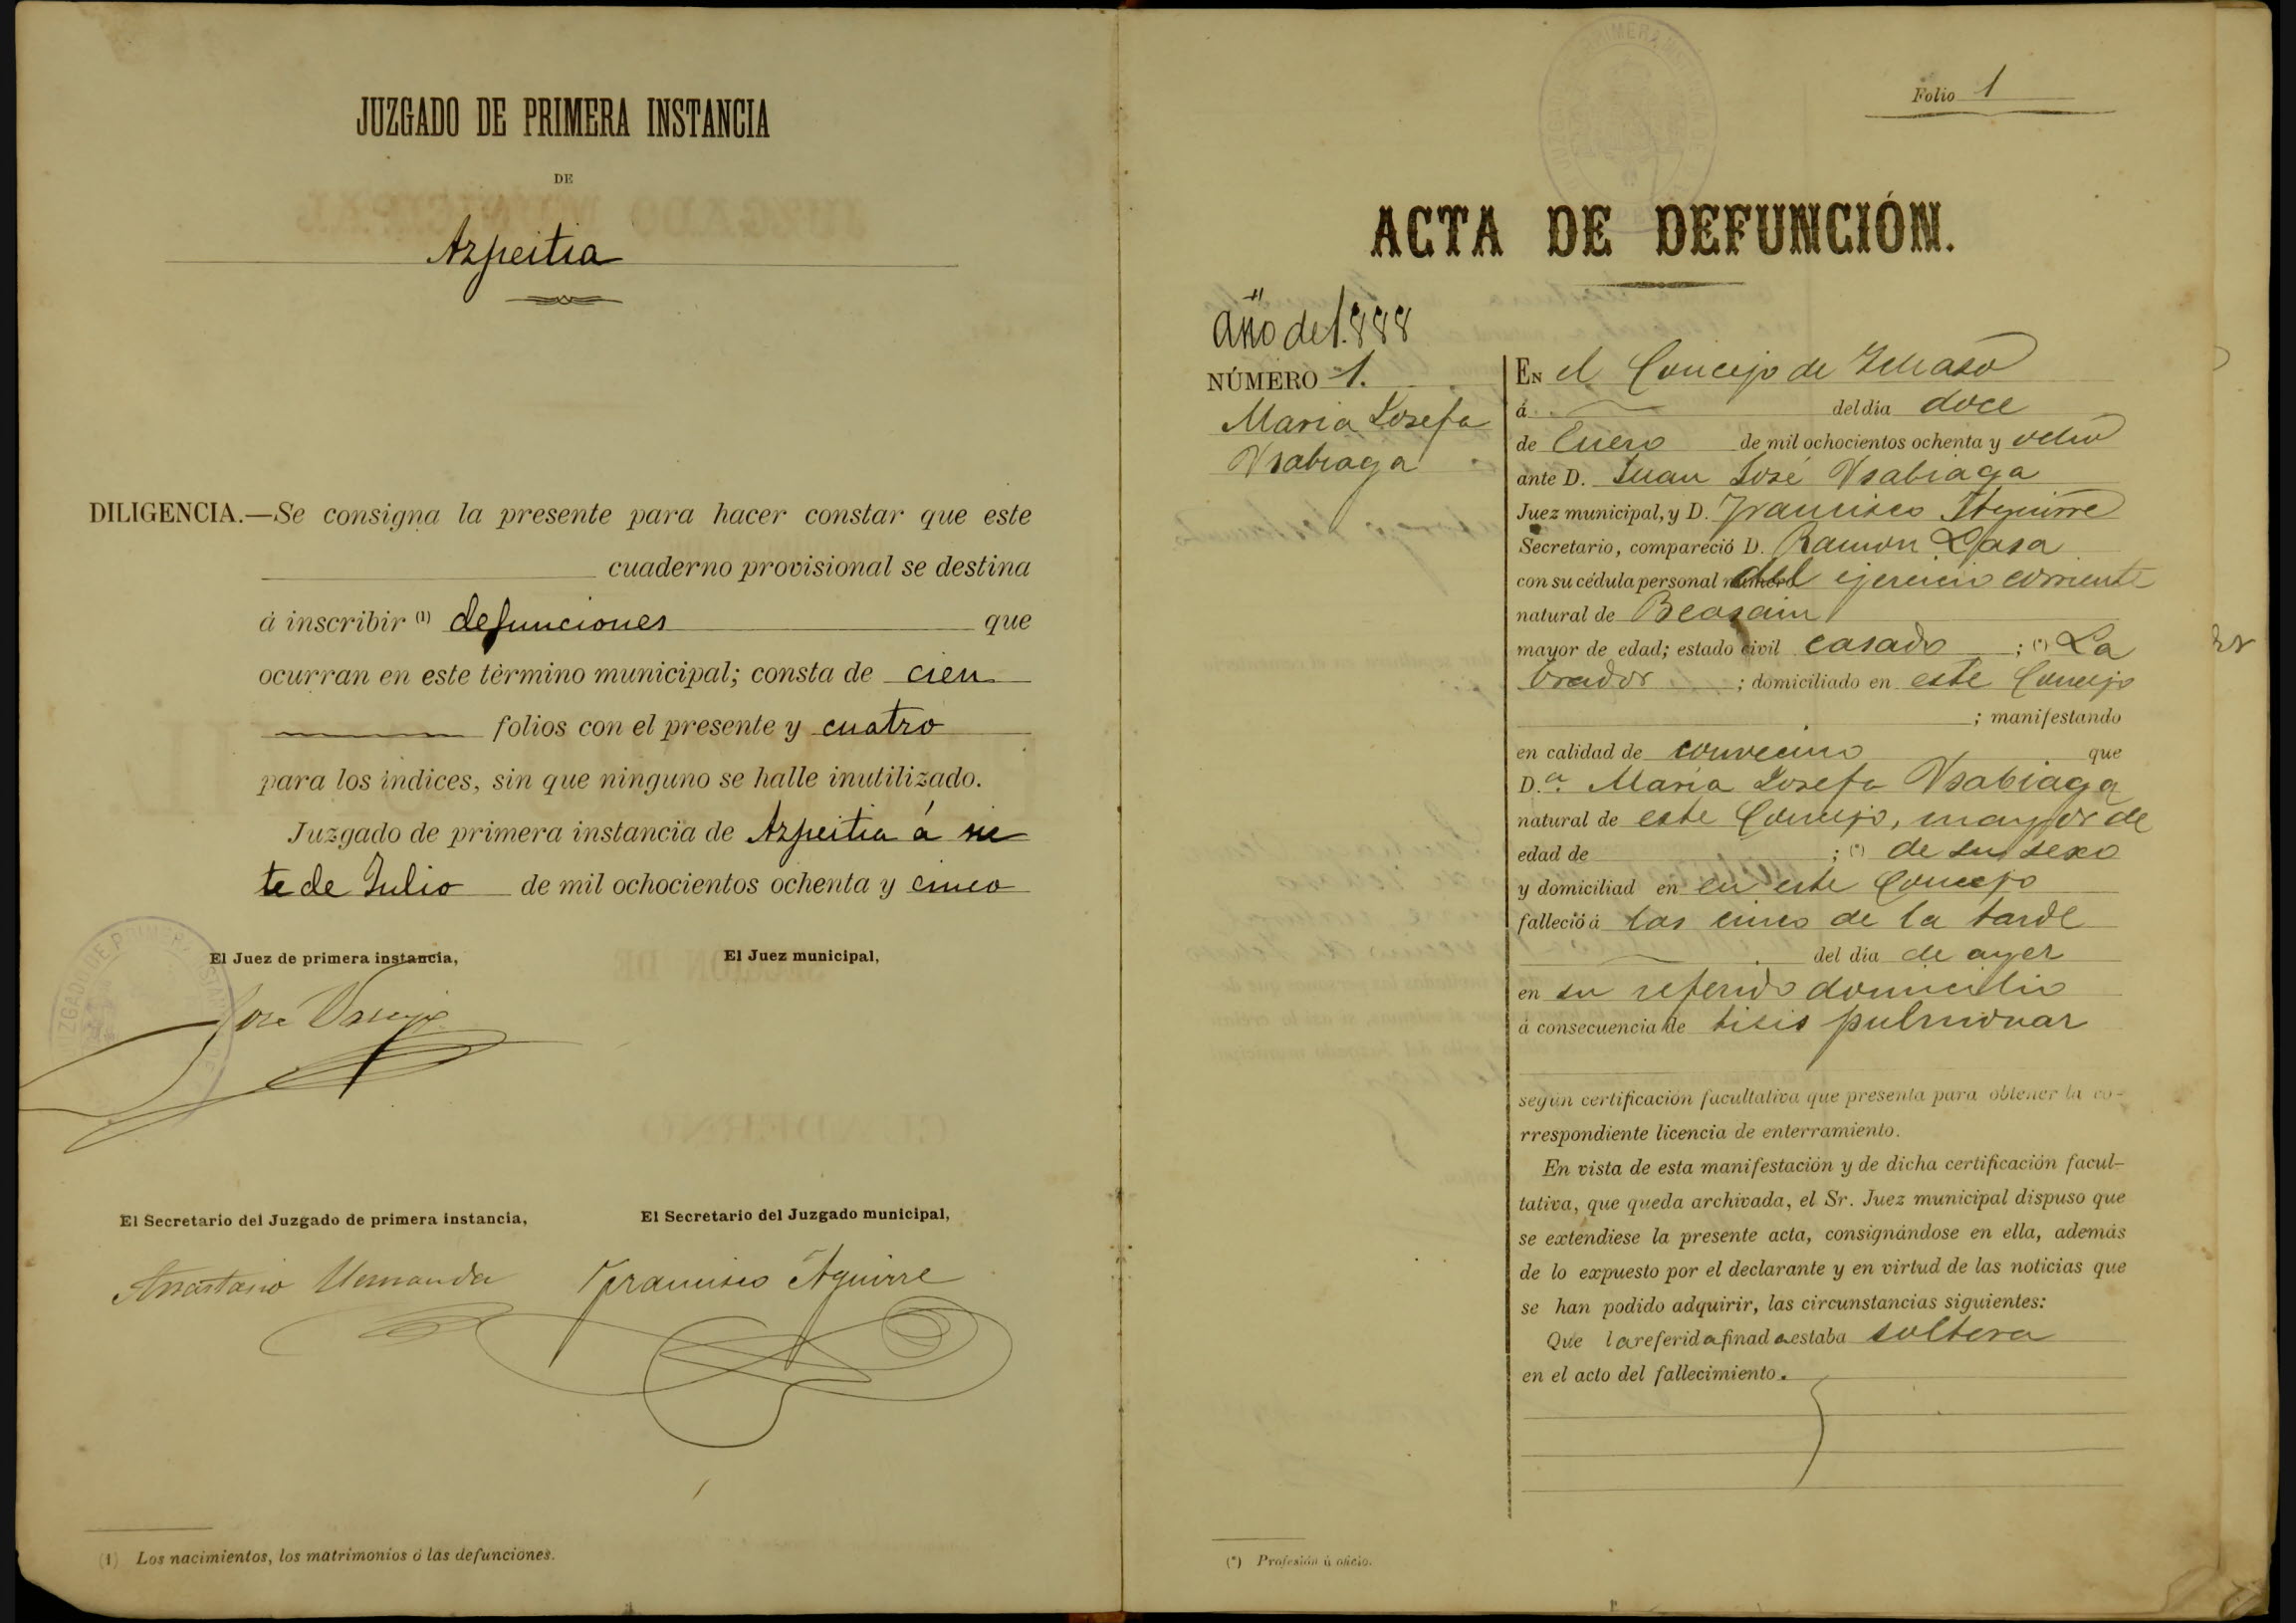 JUZGADO DE PRIMERA INSTANCIA
DE
Azpeitia
DILIGENCIA.—Se consigna la presente para hacer constar que este
cuaderno provisional se destina
á inscribir (1) defunciones que
ocurran en este término municipal; consta de cien
folios con el presente y cuatro
para los índices, sin que ninguno se halle inutilizado.
Juzgado de primera instancia de Azpeitia á sie
te de Julio de mil ochocientos ochenta y cinco
El Juez de primera instancia, El Juez municipal,
José
El Secretario del Juzgado de primera instancia, El Secretario del Juzgado municipal,
Anastasio Francisco Aguirre
(1) Los nacimientos, los matrimonios ó las defunciones.
Folio 1
ACTA DE DEFUNCIÓN.
Año de 1.888
NÚMERO 1.
Maria Josefa
Ysabiaga
EN el Concejo de Ichaso
á del dia doce
de Enero de mil ochocientos ochenta y ocho
ante D. Juan José Ysabiaga
Juez municipal, y D. Francisco Aguirre
Secretario, compareció D. Ramon Lasa
con su cédula personal número del ejercicio corriente
natural de Beasain
mayor de edad; estado civil casado ; (*) La
brador ; domiciliado en este Concejo
; manifestando
en calidad de convecino que
D.ª Maria Josefa Ysabiaga
natural de este Concejo, mayor de
edad de ; (*) de su sexo
y domiciliad en en este Concejo
falleció á las cinco de la tarde
del dia de ayer
en su referido domicilio
á consecuencia de tisis pulmonar
según certificación facultativa que presenta para obtener la co-
rrespondiente licencia de enterramiento.
En vista de esta manifestación y de dicha certificación facul-
tativa, que queda archivada, el Sr. Juez municipal dispuso que
se extendiese la presente acta, consignándose en ella, además
de lo expuesto por el declarante y en virtud de las noticias que
se han podido adquirir, las circunstancias siguientes:
Que la referida finada estaba soltera
en el acto del fallecimiento.
(*) Profesión ú oficio.